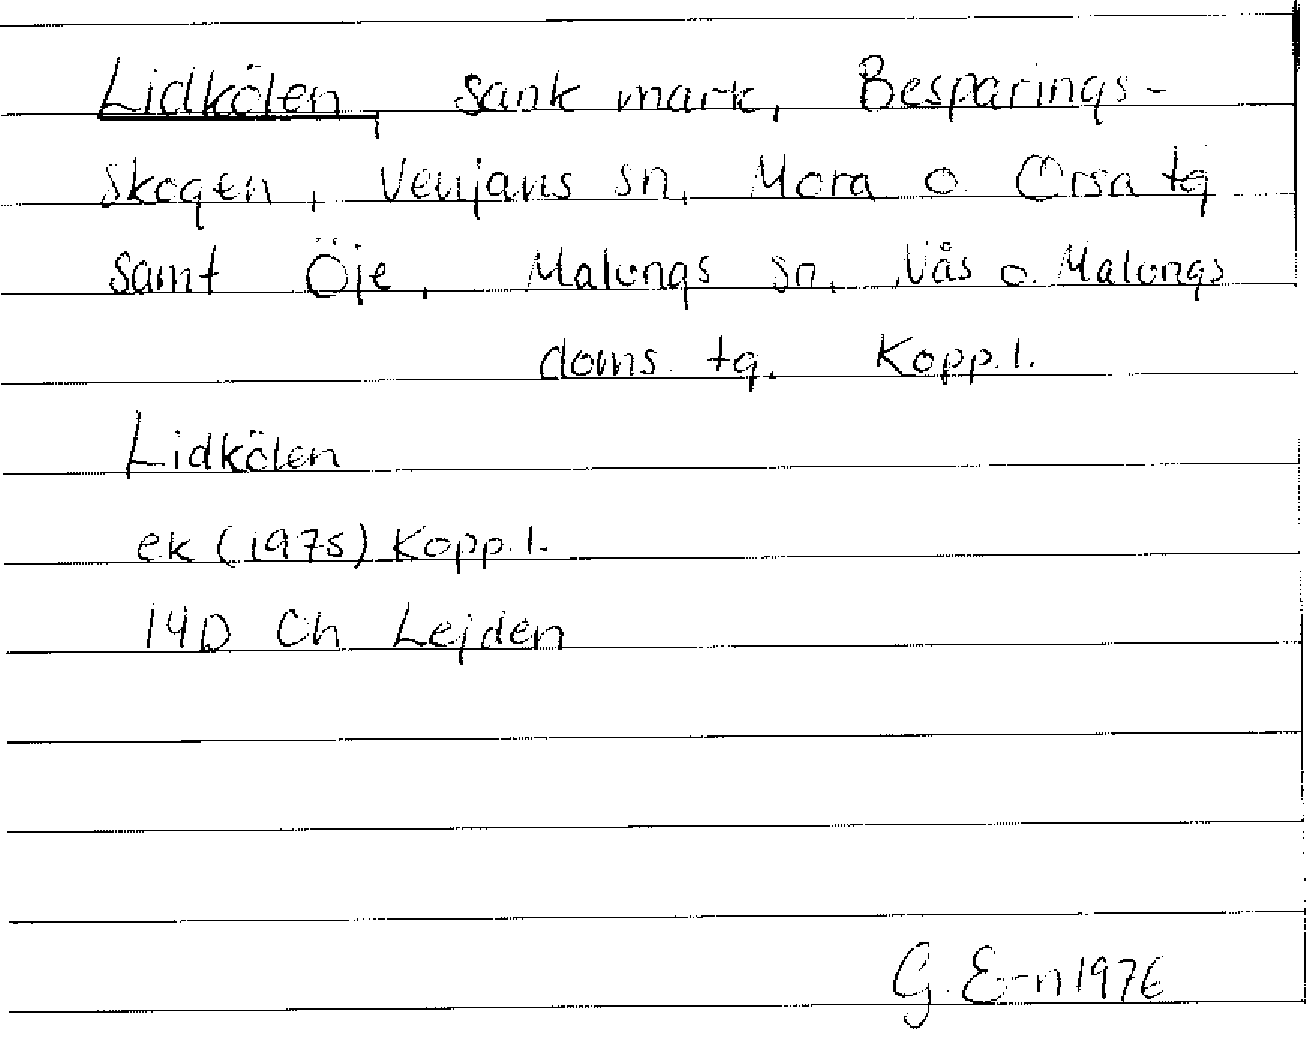 Lidkölen, sank mark, Besparings-
skogen, Venjans sn, Mora o. Orsa tg
samt Öje, Malungs sn, Nås o. Malungs
doms. tg. Kopp.l.
Lidkölen
ek (1975) Kopp.l.
14D Ch Lejden
G. E-n 1976